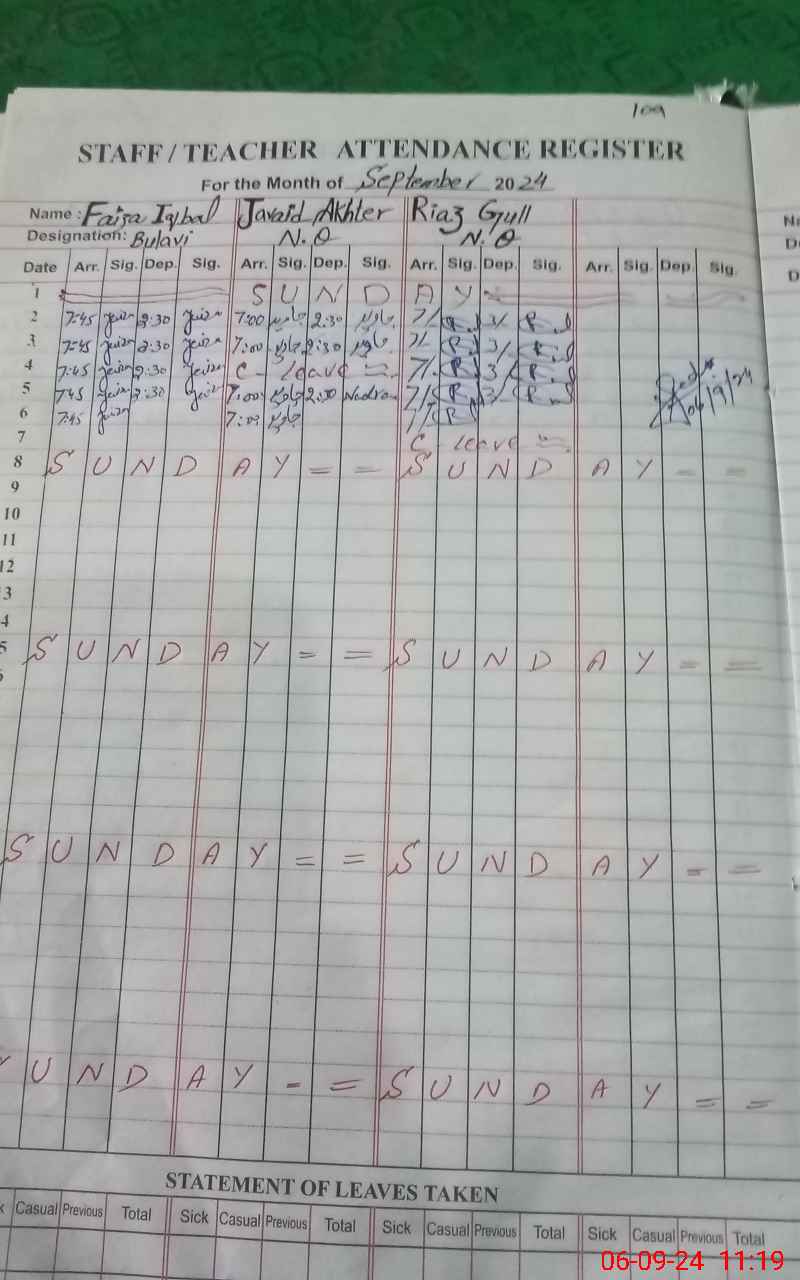 109
STAFF / TEACHER ATTENDANCE REGISTER
For the Month of September 2024
Name : Faiza Iqbal Javaid Akhter Riaz Gull
Designation: Bulavi N. Q N. Q
Date Arr. Sig. Dep. Sig. Arr. Sig. Dep. Sig. Arr. Sig. Dep. Sig. Arr. Sig. Dep. Sig.
1 S U N D A Y
2 7:45 2:30 7:00 جاوید 2:30 جاوید 7/ 3/
3 7:45 2:30 7:00 جاوید 2:30 جاوید 7/ 3/
4 7:45 2:30 C - leave = 7/ 3/
5 7:45 2:30 7:00 جاوید 2:30 7/ 3/
6 7:45 7:00 جاوید 7/ 06/9/24
7 C - leave =
8 S U N D A Y = = S U N D A Y = =
9
10
11
12
3
4
5 S U N D A Y = = S U N D A Y = =
S U N D A Y = = S U N D A Y = =
U N D A Y - = S U N D A Y = =
STATEMENT OF LEAVES TAKEN
k Casual Previous Total Sick Casual Previous Total Sick Casual Previous Total Sick Casual Previous Total
06-09-24 11:19